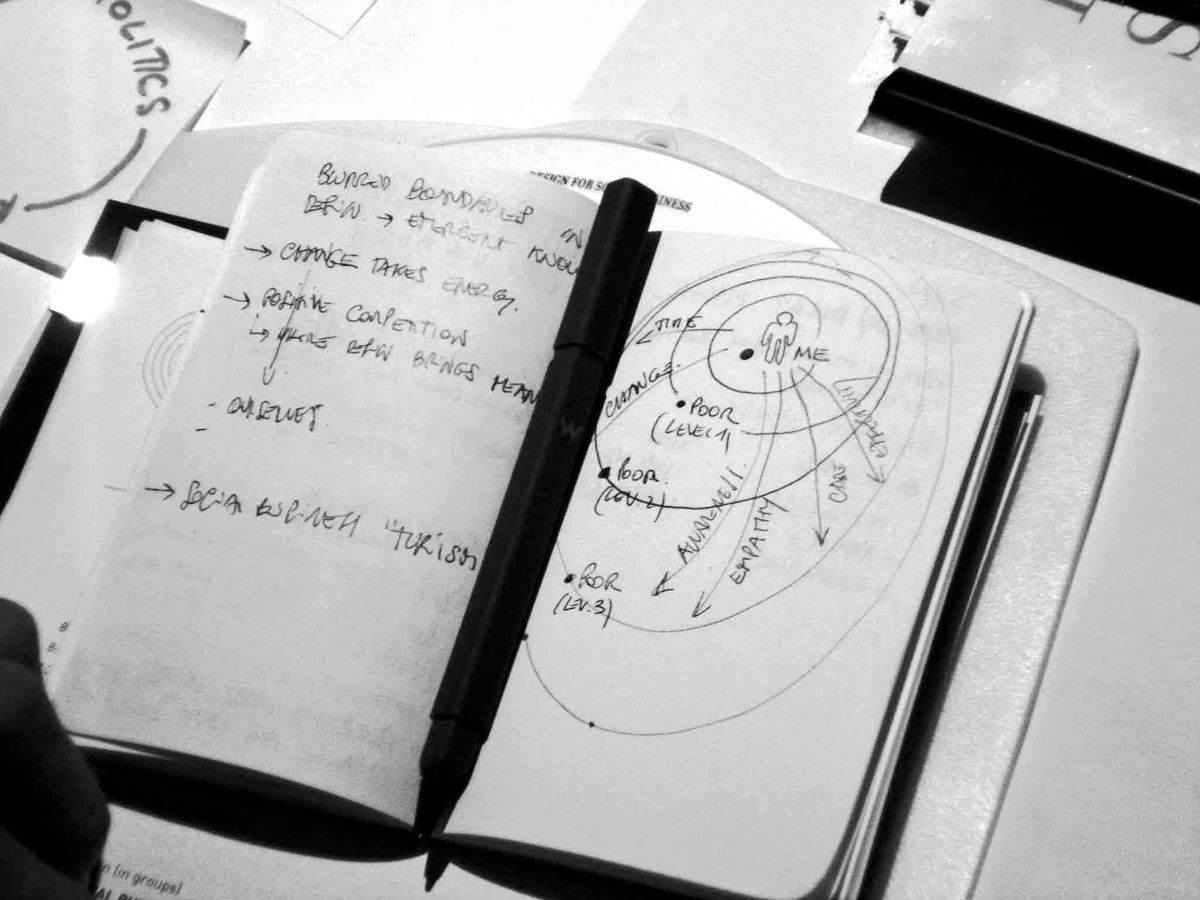 OLITICS
S
BLURRED BOUNDARIES IN
→ EMERGENT KNOW
→ CHANGE TAKES ENERGY.
→ POSITIVE COMPETITION
BRINGS MEAN
- OURSELVES.
-
→ SOCIAL BUSINESS "TURISM
ESIGN FOR SO INESS
TIME
ME
CHANGE.
POOR
(LEVEL 1)
POOR
(LEV. 2)
POOR
(LEV. 3)
AWARENESS.
EMPATHY
CARE
n (in groups)